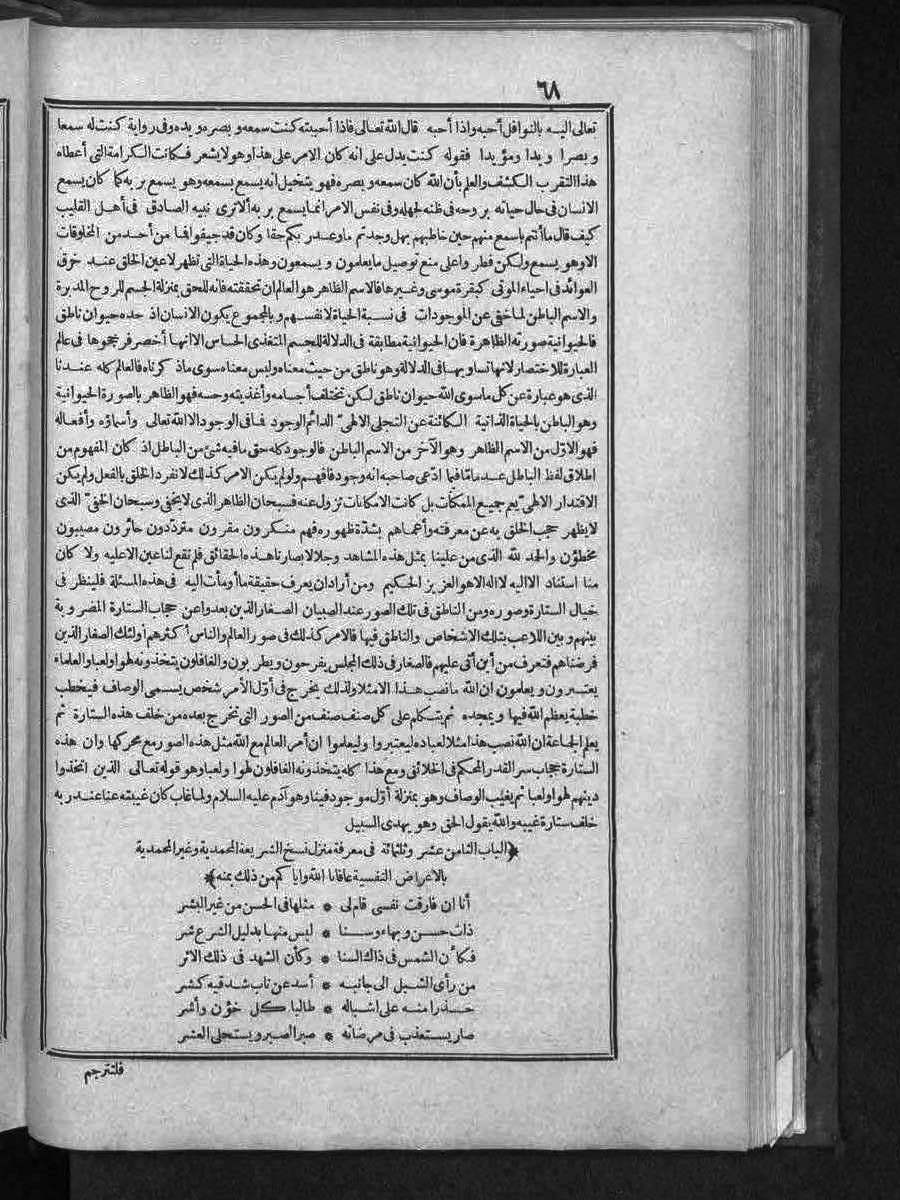 ٦٨
تعالى اليه بالنوافل أحبه واذا أحبه قال الله تعالى فاذا أحببته كنت سمعه وبصره ويده وفى رواية كنت له سمعا
وبصرا ويدا ومؤيدا فقوله كنت يدل على انه كان الامر على هذا وهو لا يشعر فكانت الكرامة التى أعطاه
هذا التقرب الكشف والعلم بأن الله كان سمعه وبصره فهو يتخيل انه يسمع بسمعه وهو يسمع بربه كما كان يسمع
الانسان فى حال حياته بروحه فى ظنه لجهله وفى نفس الامر انما يسمع بربه ألا ترى نبيه الصادق فى أهل القليب
كيف قال ما أنتم بأسمع منهم حين خاطبهم بهل وجدتم ما وعد ربكم حقا وكان قد جيفوا فما من أحد من المخلوقات
الا وهو يسمع ولكن فطر واعلى منع توصيل ما يعلمون ويسمعون وهذه الحياة التى تظهر لاعين الخلق عند خرق
العوائد فى احياء الموتى كبقرة موسى وغيرها فالاسم الظاهر هو العالم ان تحققته فانه للحق بمنزلة الجسم للروح المدبرة
والاسم الباطن لما خفى عن الموجودات فى نسبة الحياة لانفسهم وبالمجموع يكون الانسان اذ حده حيوان ناطق
فالحيوانية صورته الظاهرة فان الحيوانية مطابقة فى الدلالة للجسم المتغذى الحساس الا انها أخصر فرجحوها فى عالم
العبارة للاختصار لانها تساويها فى الدلالة وهو ناطق من حيث معناه وليس معناه سوى ما ذكرناه فالعالم كله عندنا
الذى هو عبارة عن كل ما سوى الله حيوان ناطق لكن تختلف أجسامه وأغذيته وحسه فهو الظاهر بالصورة الحيوانية
وهو الباطن بالحياة الذاتية الكائنة عن التجلى الالهىّ الدائم الوجود فما فى الوجود الا الله تعالى وأسماؤه وأفعاله
فهو الاوّل من الاسم الظاهر وهو الآخر من الاسم الباطن فالوجود كله حق ما فيه شئ من الباطل اذ كان المفهوم من
اطلاق لفظ الباطل عدما فيما ادّعى صاحبه انه وجود فافهم ولو لم يكن الامر كذلك لانفرد الخلق بالفعل ولم يكن
الاقتدار الالهىّ يعم جميع الممكنات بل كانت الامكانات تزول عنه فسبحان الظاهر الذى لا يخفى وسبحان الخفىّ الذى
لا يظهر حجب الخلق به عن معرفته وأعماهم بشدّة ظهوره فهم منكرون مقرون متردّدون حائرون مصيبون
مخطؤن والحمد لله الذى من علينا بمثل هذه المشاهد وجلا لابصارنا هذه الحقائق فلم تقع لنا عين الا عليه ولا كان
منا استناد الا اليه لا اله الا هو العزيز الحكيم ومن أراد ان يعرف حقيقة ما أومأت اليه فى هذه المسئلة فلينظر فى
خيال الستارة وصوره ومن الناطق فى تلك الصور عند الصبيان الصغار الذين بعدوا عن حجاب الستارة المضروبة
بينهم وبين اللاعب بتلك الاشخاص والناطق فيها فالامر كذلك فى صور العالم والناس أكثرهم أولئك الصغار الذين
فرضناهم فتعرف من أين أتى عليهم فالصغار فى ذلك المجلس يفرحون ويطربون والغافلون يتخذونه لهوا ولعبا والعلماء
يعتبرون ويعلمون ان الله ما نصب هذا الا مثلا ولذلك يخرج فى أوّل الأمر شخص يسمى الوصاف فيخطب
خطبة يعظم الله فيها ويمجده ثم يتكلم على كل صنف صنف من الصور التى تخرج بعده من خلف هذه الستارة ثم
يعلم الجماعة ان الله نصب هذا مثلا لعباده ليعتبروا وليعلموا ان أمر العالم مع الله مثل هذه الصور مع محركها وان هذه
الستارة حجاب سر القدر المحكم فى الخلائق ومع هذا كله يتخذونه الغافلون لهوا ولعبا وهو قوله تعالى الذين اتخذوا
دينهم لهوا ولعبا ثم يغيب الوصاف وهو بمنزلة أوّل موجود فينا وهو آدم عليه السلام ولما غاب كان غيبته عنا عند ربه
خلف ستارة غيبه والله يقول الحق وهو يهدى السبيل
﴿الباب الثامن عشر وثلثمائة فى معرفة منزل نسخ الشريعة المحمدية وغير المحمدية
بالاغراض النفسية عافانا الله واياكم من ذلك بمنه﴾
أنا ان فارقت نفسى قام لى * مثلها فى الحسن من غير البشر
ذات حسن وبهاء وسنا * ليس منها بدليل الشرع شر
فكأن الشمس فى ذاك السنا * وكأن الشهد فى ذلك الاثر
من رأى الشبل الى جانبه * أسد عن ناب شدقيه كشر
حذرا منه على اشباله * طالبا كل خؤن وأشر
صار يستعذب فى مرضاته * صبر الصبر ويستحلى العشر
فلنترجم